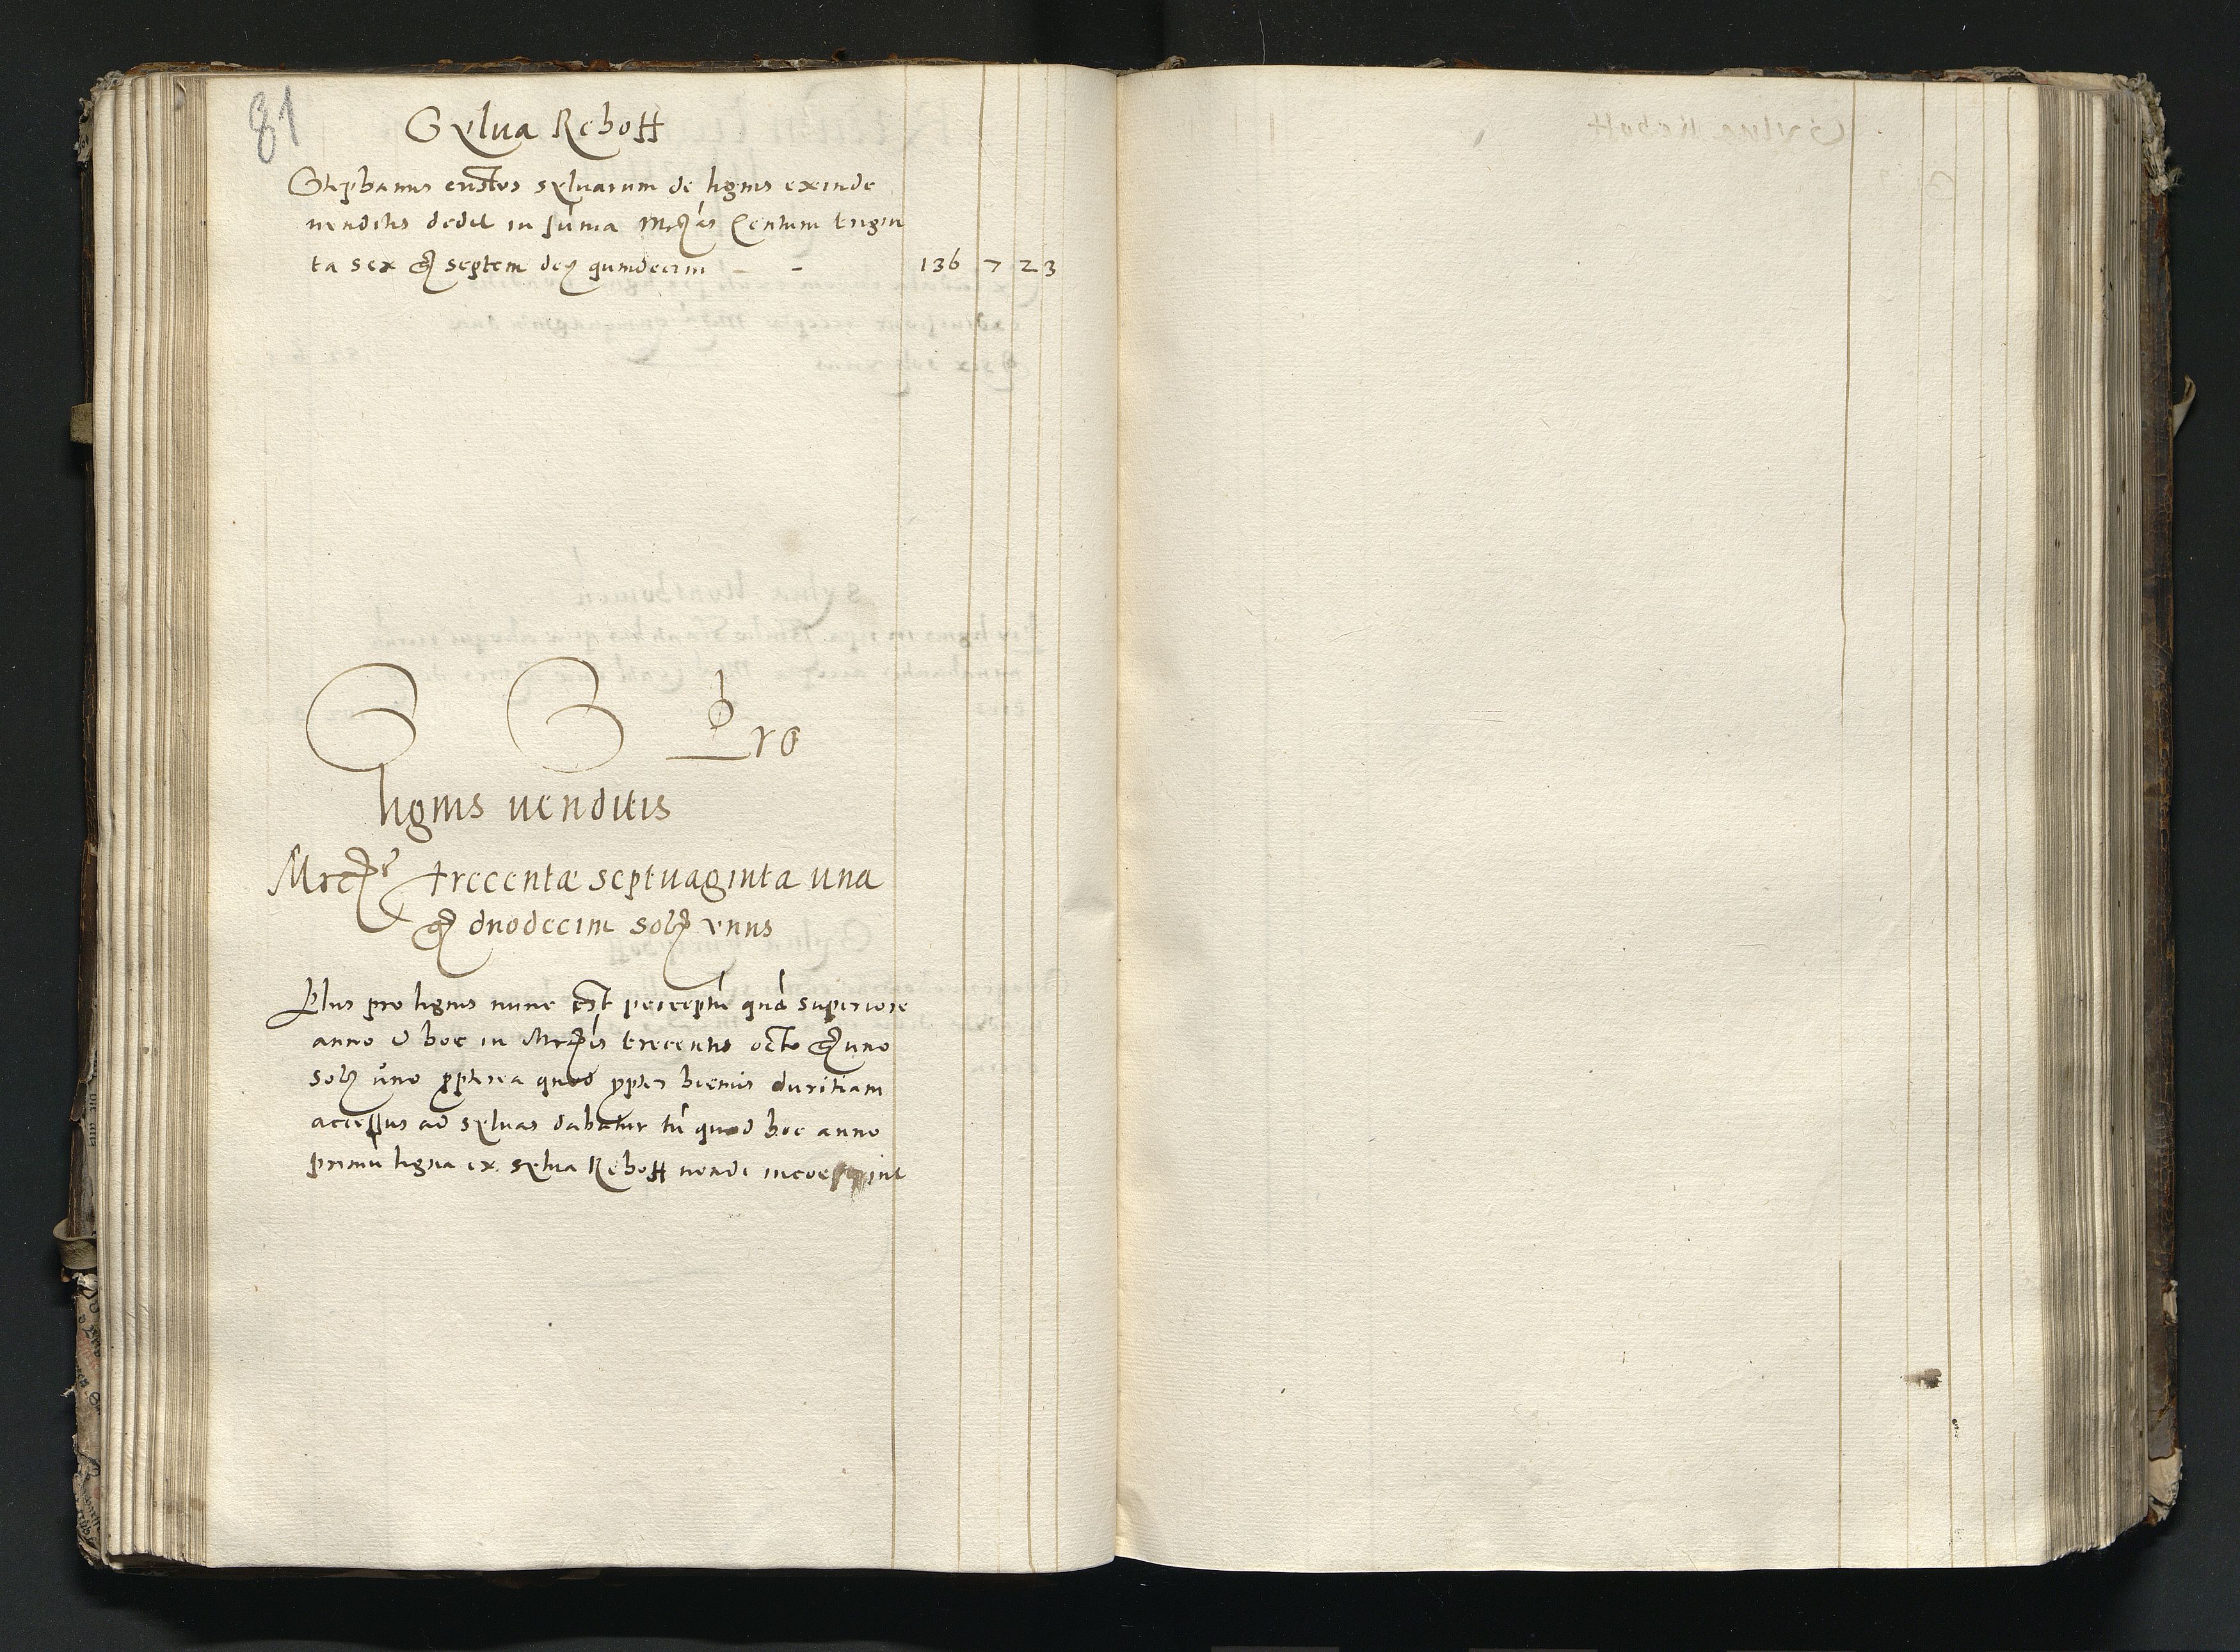 81
Sylua Reboff
Stephanus custos syluarum de lignis exinde
uenditis dedit in sum̄a Mrcas Centum trigin
ta sex gr septem den quindecim - -  136 7 2 3
S S Pro
lignis uenditis
Mrce trecentæ septuaginta una
gr duodecim sold vnus
Plus pro lignis nunc est perceptū quā superiore
anno & hoc in Mrcis trecentis octo gr uno
sold ůno ꝓpterea quod ꝓpter hiemis duritiam
accessus ad syluas dabatur tū quod hoc anno
primū ligna ex sylua Reboff uendi